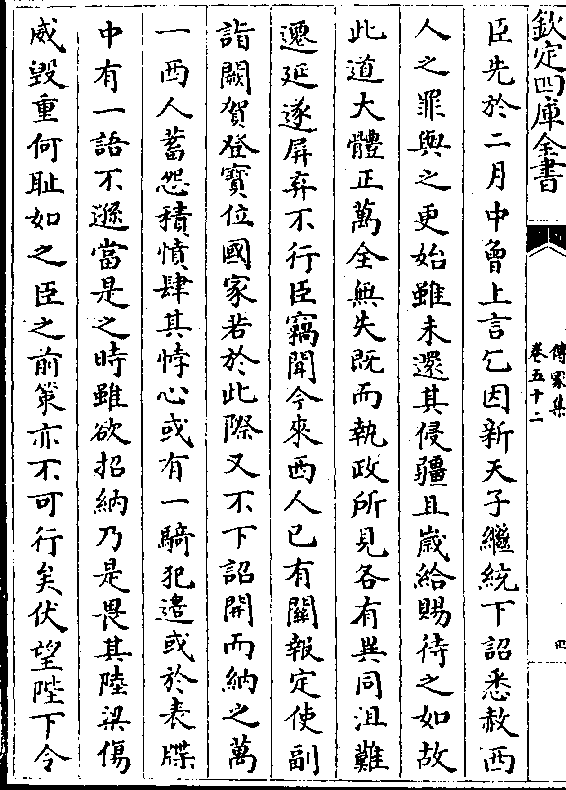 欽定四庫全書
傳家集
卷五十二
四
臣先於二月中曾上言乞因新天子繼統下詔悉赦西
人之罪與之更始雖未還其侵疆且歲給賜待之如故
此道大體正萬全無失既而執政所見各有異同沮難
遷延遂屏弃不行臣竊聞今來西人已有關報定使副
詣闕賀登寳位國家若於此際又不下詔開而納之萬
一西人蓄怨積憤肆其悖心或有一騎犯邉或於表牒
中有一語不遜當是之時雖欲招納乃是畏其陸梁傷
威毀重何耻如之臣之前策亦不可行矣伏望陛下令